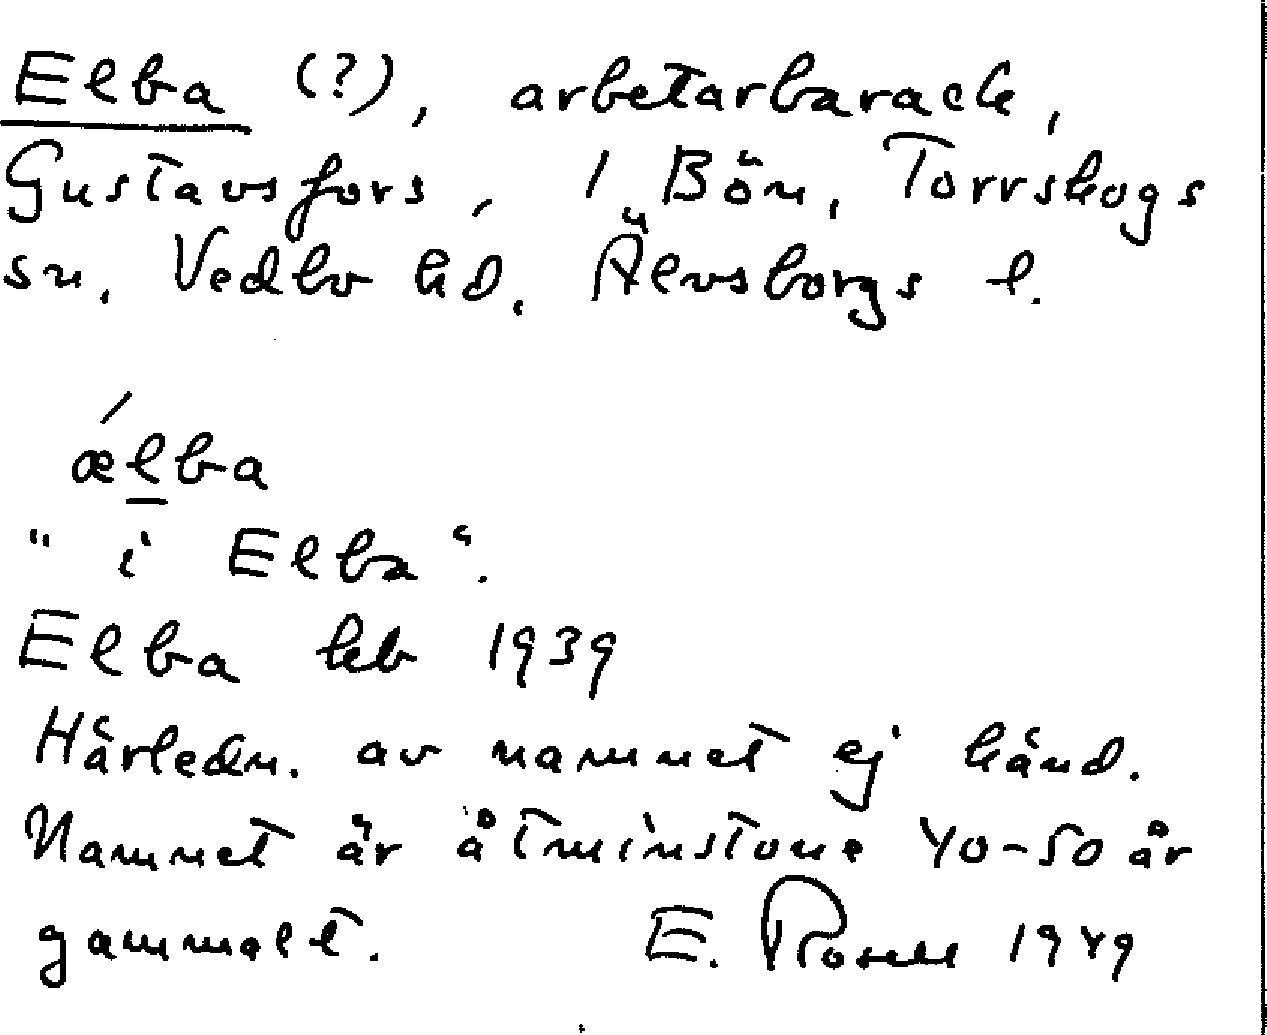 Elba (?), arbetarbarack,
Gustavsfors, 1 Bön, Torrskogs
sn. Vedbo hd. Älvsborgs l.
ǽlba
"i Elba".
Elba kb 1939
Härledn. av namnet ej känd.
Namnet är åtminstone 40-50 år
gammalt. E. Rosell 1949